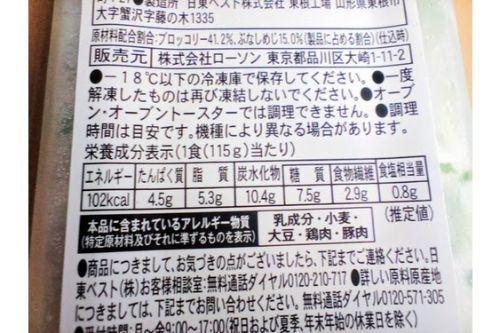 ●製造所 日東ベスト株式会社 東根工場 山形県東根市
大字蟹沢字藤の木1335
原材料配合割合:ブロッコリー41.2%、ぶなしめじ15.0%(製品に占める割合)(仕込時)
販売元 株式会社ローソン 東京都品川区大崎1-11-2
●−18℃以下の冷凍庫で保存してください。●一度
解凍したものは再び凍結しないでください。●オーブ
ン・オーブントースターでは調理できません。●調理
時間は目安です。機種により異なる場合があります。
栄養成分表示(1食(115g)当たり)
エネルギー たんぱく質 脂質 炭水化物 糖質 食物繊維 食塩相当量
102kcal 4.5g 5.3g 10.4g 7.5g 2.9g 0.8g
本品に含まれているアレルギー物質 乳成分・小麦・ (推定値)
(特定原材料及びそれに準ずるものを表示) 大豆・鶏肉・豚肉
●商品につきまして、お気づきの点がございましたら、下記までご連絡ください。日
東ベスト(株)お客様相談室:無料通話ダイヤル0120-210-717 ●詳しい原料原産地
につきましては、下記までお問い合わせください。無料通話ダイヤル0120-571-305
●受付時間:月〜金9:00〜17:00(祝日および夏季、年末年始の休業日を除く)